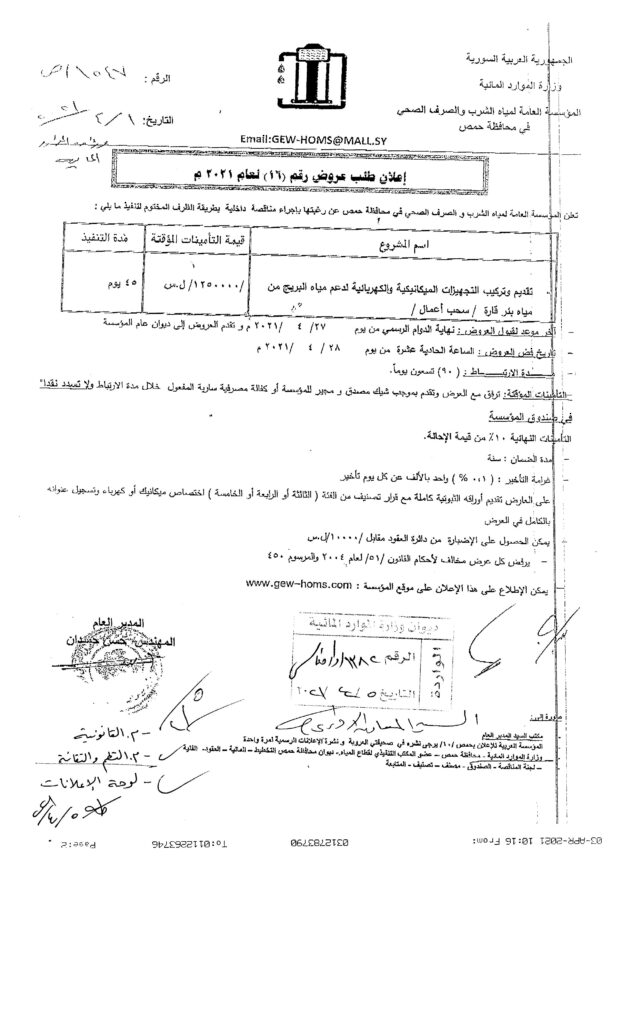 الجمهورية العربية السورية
وزارة الموارد المائية
المؤسسة العامة لمياه الشرب والصرف الصحي
في محافظة حمص
الرقم :
التاريخ:
Email:GEW-HOMS@MALL.SY
إعلان طلب عروض رقم (١٦) لعام ٢٠٢١ م
تعلن المؤسسة العامة لمياه الشرب و الصرف الصحي في محافظة حمص عن رغبتها بإجراء مناقصة داخلية بطريقة الظرف المختوم لتنفيذ ما يلي :
اسم المشروع قيمة التأمينات المؤقتة مدة التنفيذ
تقديم وتركيب التجهيزات الميكانيكية والكهربائية لدعم مياه البريج من /١٢٥٠٠٠٠/ ل.س ٤٥ يوم
مياه بئر قارة / سحب أعمال /
– آخر موعد لقبول العروض : نهاية الدوام الرسمي من يوم ٢٧/ ٤ /٢٠٢١ م و تقدم العروض إلى ديوان عام المؤسسة
– تاريخ فض العروض : الساعة الحادية عشرة من يوم ٢٨ / ٤ /٢٠٢١ م
– مدة الارتبـــــاط : (٩٠) تسعون يوماً.
– التأمينات المؤقتة: ترفق مع العرض وتقدم بموجب شيك مصدق و مجير للمؤسسة أو كفالة مصرفية سارية المفعول خلال مدة الارتباط ولا تسدد نقدا"
في صندوق المؤسسة
التأمينات النهائية ١٠٪ من قيمة الإحالة.
– مدة الضمان : سنة
– غرامة التأخير : ( ٠,١ % ) واحد بالألف عن كل يوم تأخير
– على العارض تقديم أوراقه الثبوتية كاملة مع قرار تصنيف من الفئة ( الثالثة أو الرابعة أو الخامسة ) اختصاص ميكانيك أو كهرباء وتسجيل عنوانه
بالكامل في العرض
– يمكن الحصول على الإضبارة من دائرة العقود مقابل /١٠٠٠٠/ل.س
– يرفض كل عرض مخالف لأحكام القانون /٥١/ لعام ٢٠٠٤ والمرسوم ٤٥٠
– يمكن الإطلاع على هذا الإعلان على موقع المؤسسة : www.gew-homs.com
المدير العام
المهندس حسن حميدان
ديوان وزارة الموارد المائية
الواردة:
الرقم
التاريخ
صورة إلى:
– مكتب السيد المدير العام
– المؤسسة العربية للإعلان بحمص /١٠/ يرجى نشره في صحيفتي العروبة و نشرة الإعلانات الرسمية لمرة واحدة
– وزارة الموارد المائية – محافظة حمص – عضو المكتب التنفيذي لقطاع المياه. ديوان محافظة حمص التخطيط – المالية – العقود- الفنية
– لجنة المناقصة – الصندوق – مصنف – تصنيف – المتابعة
– م. القانونية
– م. النظم والتقانة
– لوحة الإعلانات
03-APR-2021 10:16 From: 0312783790 To:0112263746 Page:2